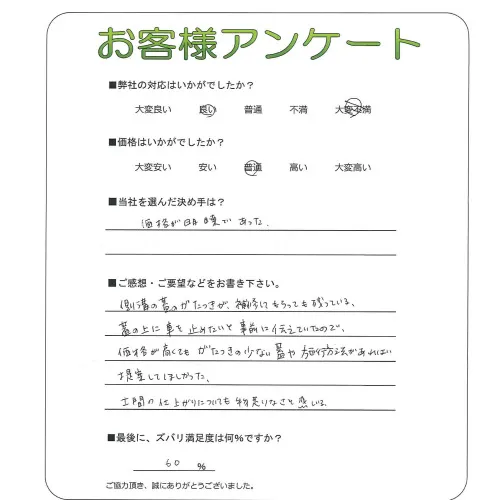 お客様アンケート
■弊社の対応はいかがでしたか？
大変良い 良い 普通 不満 大変不満
■価格はいかがでしたか？
大変安い 安い 普通 高い 大変高い
■当社を選んだ決め手は？
価格が明瞭であった。
■ご感想・ご要望などをお書き下さい。
側溝の蓋のがたつきが、補修してもらっても残っている。
蓋の上に車を止めたいと事前に伝えていたので、
価格が高くてもがたつきの少ない蓋や施行方法があれば
提案してほしかった。
土間の仕上がりについても物足りなさを感じる。
■最後に、ズバリ満足度は何%ですか？
60 %
ご協力頂き、誠にありがとうございました。